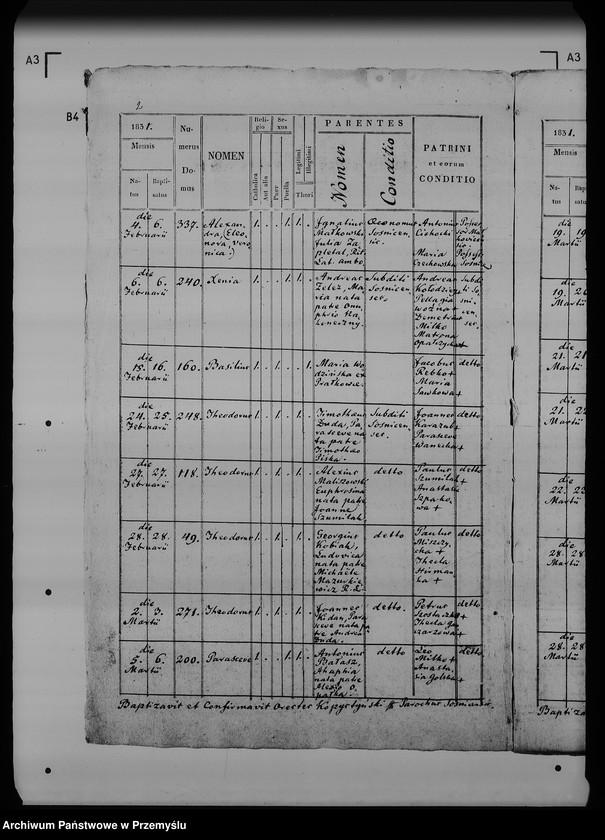 A3
A3
B4
2
1831.
Mensis
Na-
tus
Bapti-
satus
Nu-
merus
Do-
mus
NOMEN
Reli-
gio
Catholica
Aut alia
Se-
xus
Puer
Puella
Legitimi
Illegitimi
Thori
PARENTES
Nomen
Conditio
PATRINI
et eorum
CONDITIO
die
4. 6.
Februarii
337.
Alexan
dra, Eleo
nora, Vero
nica
1. 1. 1.
Ignatius
Julia Za
pletal, Rit.
Lat. ambo
Oeconomus
Sosnicen
sis.
Antonius
Cichocki
Maria
die
6. 6.
Februarii
240.
Xenia
1. 1. 1.
Andreas
Zelez, Ma
ria nata
patre Onu
phrio
Subditi
Sosnicen
ses
Andreas
Kołodziej
Pellagia
Woźna +
Demetrius
Mitko
Matrona
Subdi
ti So
sni
cen
ses.
die
15. 16.
Februarii
160.
Basilius
1. 1. 1.
Maria Wo
dzińska ex
Prałkowce.
Jacobus
Rebko +
Maria
Sawkowa +
detto
die
24. 25.
Februarii
248.
Theodorus
1. 1. 1.
Timotheus
Duda, Pa
rasceve na
ta patre
Timotheo
Subditi
Sosnicen
ses.
Joannes
Parasceve
detto
die
27. 27.
Februarii
118.
Theodorus
1. 1. 1.
Alexius
Maliszowski
Euphrosina
nata patre
Joanne
Szumilak
detto
Paulus
Szumilak
Anastasia
Szpako
wa +
detto
die
28. 28.
Februarii
49.
Theodorus
1. 1. 1.
Georgius
Kobiak,
Ludovica
nata patre
Michaele
Mazurkie
wicz R. L.
detto
Paulus
cha +
Thecla
detto
die
2. 3.
Martii
271.
Theodorus
1. 1. 1.
Joannes
Kidan, Para
sceve nata pa
tre Andrea
Duda.
detto.
Petrus
Thecla
detto
die
5. 6.
Martii
200.
Parasceve
1. 1. 1.
Antonius
Bałasz,
Ahaphia
nata patre
Alexio O
pałka.
detto
Leo
Mitko +
Anasta
sia Golska +
detto
Baptizavit et Confirmavit Orestes Kopystyński Parochus Sosnicensis.
1831.
Mensis
Na-
tus
Bap
die
19. 19
Martii
die
19. 20
Martii
die
21. 21
Martii
die
21. 22
Martii
die
22. 23
Martii
die
28. 28
Martii
die
28. 28
Martii
Baptiza
Archiwum Państwowe w Przemyślu